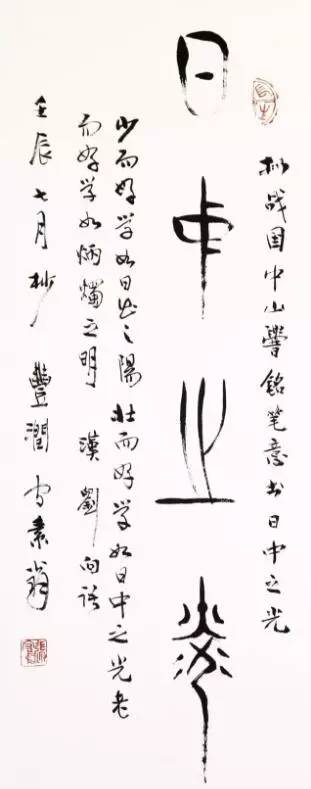 战国中山铭笔意书日中之光
日中之光
少而好学如日出之陽壮而好学如日中之光老
而好学如炳燭之明 漢劉向语
壬辰七月杪 豐潤素翁